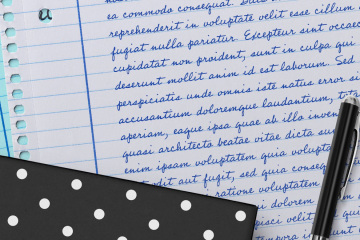 a
ea commodo consequat. Duis
reprehenderit in voluptate velit esse cillum
fugiat nulla pariatur. Excepteur sint occaec
cupidatat non proident, sunt in culpa qui
deserunt mollit anim id est laborum. Sed
perspiciatis unde omnis iste natus error si
accusantium doloremque laudantium, tota
aperiam, eaque ipsa quae ab illo inven
quasi architecto beatae vitae dicta su
enim ipsam voluptatem quia volupta
odit aut fugit, sed quia conseq
ratione voluptatem
dolorem
velit